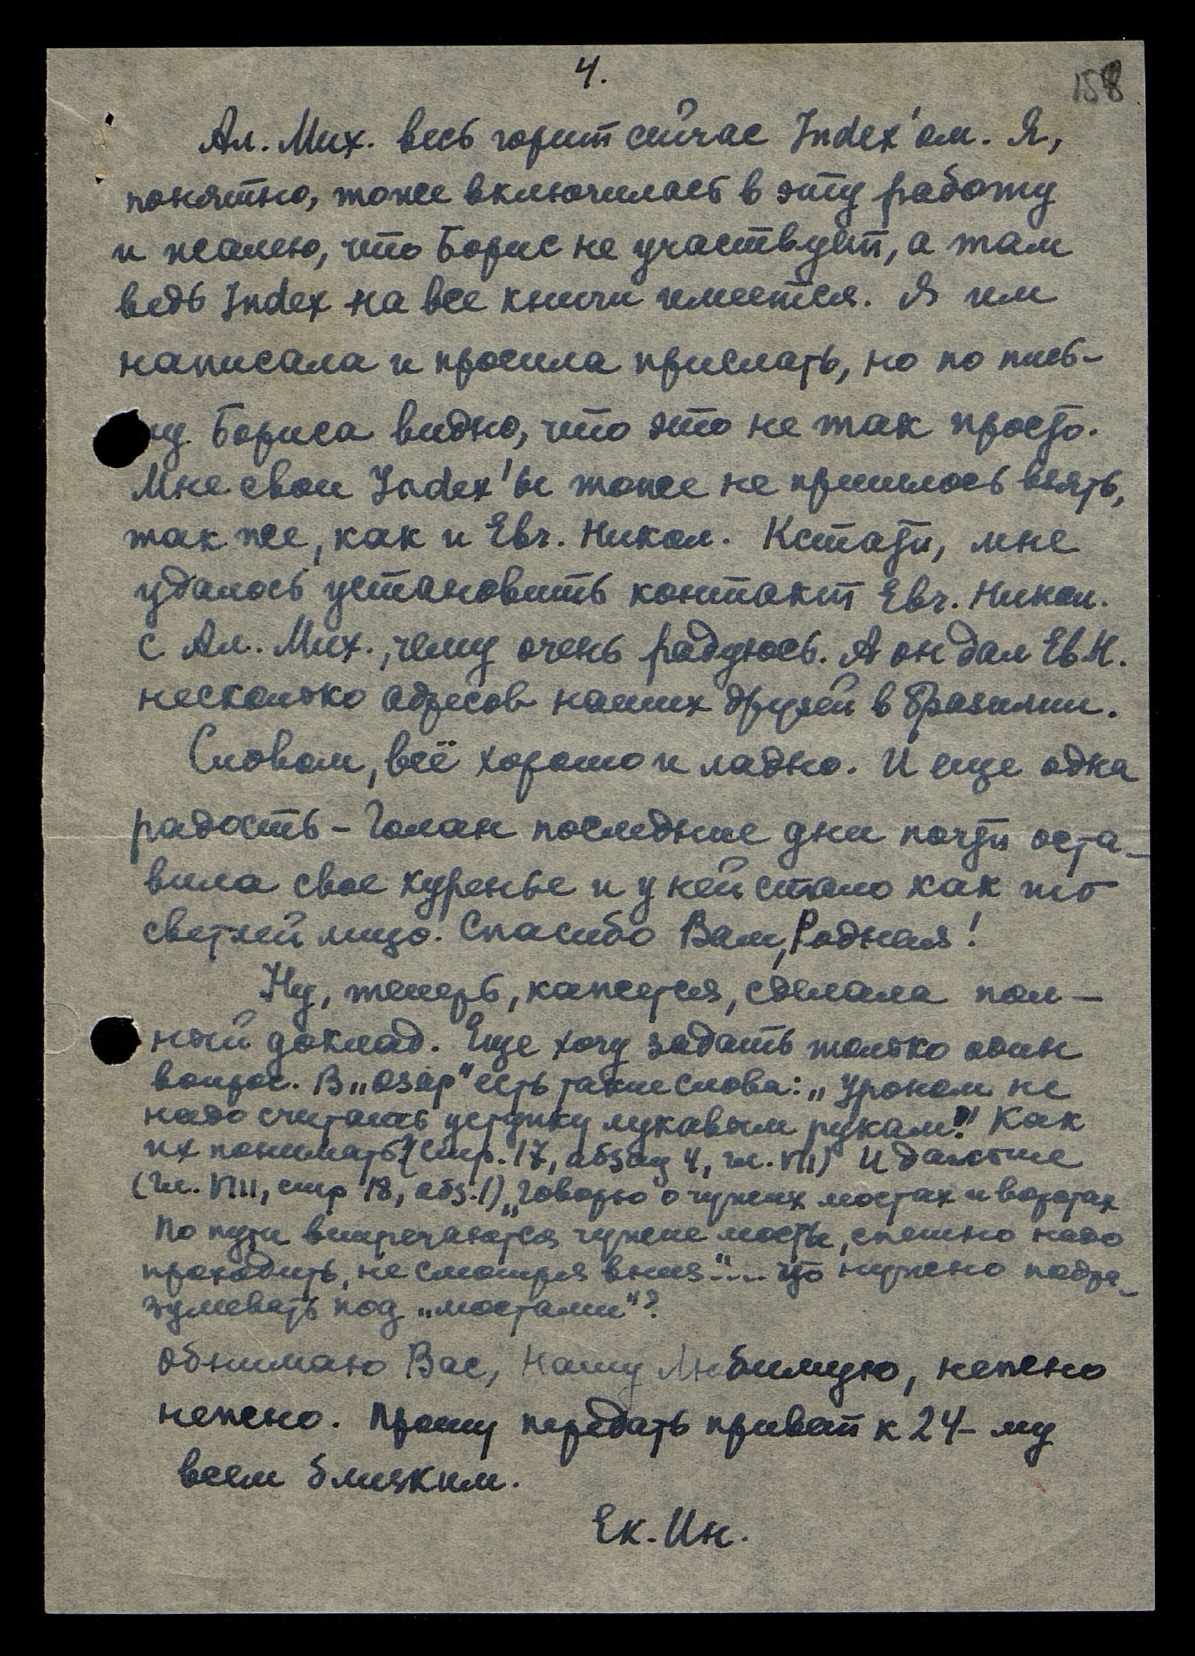 4.
158
Ал. Мих. весь горит сейчас Index'ом. Я,
понятно, тоже включилась в эту работу
и жалею, что Борис не участвует, а там
ведь Index на все книги имеется. Я им
написала и просила прислать, но по пись-
му Бориса видно, что это не так просто.
Мне свои Index'ы тоже не пришлось взять,
так же, как и Евг. Никол. Кстати, мне
удалось установить контакт Евг. Никол.
с Ал. Мих., чему очень радуюсь. А он дал Ев.Н.
несколько адресов наших друзей в Бразилии.
Словом, всё хорошо и ладно. И еще одна
радость – Голан последние дни почти оста-
вила свое куренье и у ней стало как то
светлей лицо. Спасибо Вам, Родная!
Ну, теперь, кажется, сделала пол-
ный доклад. Еще хочу задать только один
вопрос. В „Озар" есть такие слова: „Уроном не
надо считать уступку лукавым рукам"! Как
их понимать? (Стр. 17, абзац 4, гл. VII) И дальше
(Гл. VIII, стр 18, абз. 1) „Говорю о чужих мостах и воротах
По пути встречаются чужие мосты, спешно надо
проходить, не смотря вниз"... Что нужно подра-
зумевать под „мостами"?
Обнимаю Вас, Нашу Любимую, нежно
нежно. Прошу передать привет к 24-му
всем близким.
Ек. Ин.